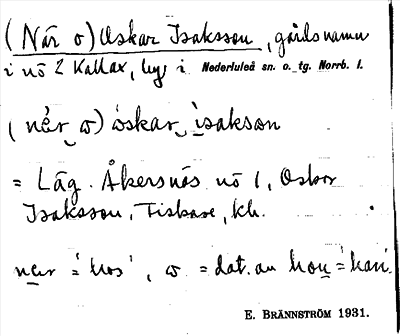 (När o) Oskar Isaksson, gårdsnamn
i nö 2 Kallax, by i Nederluleå sn. o. tg. Norrb. l.
(nér, o) òskar, ìsakson
= Läg. Åkersnäs nö 1, Oskar
Isaksson, Fiskare, kh.
när = 'hos', o = dat. av hon = 'han'.
E. BRÄNNSTRÖM 1931.